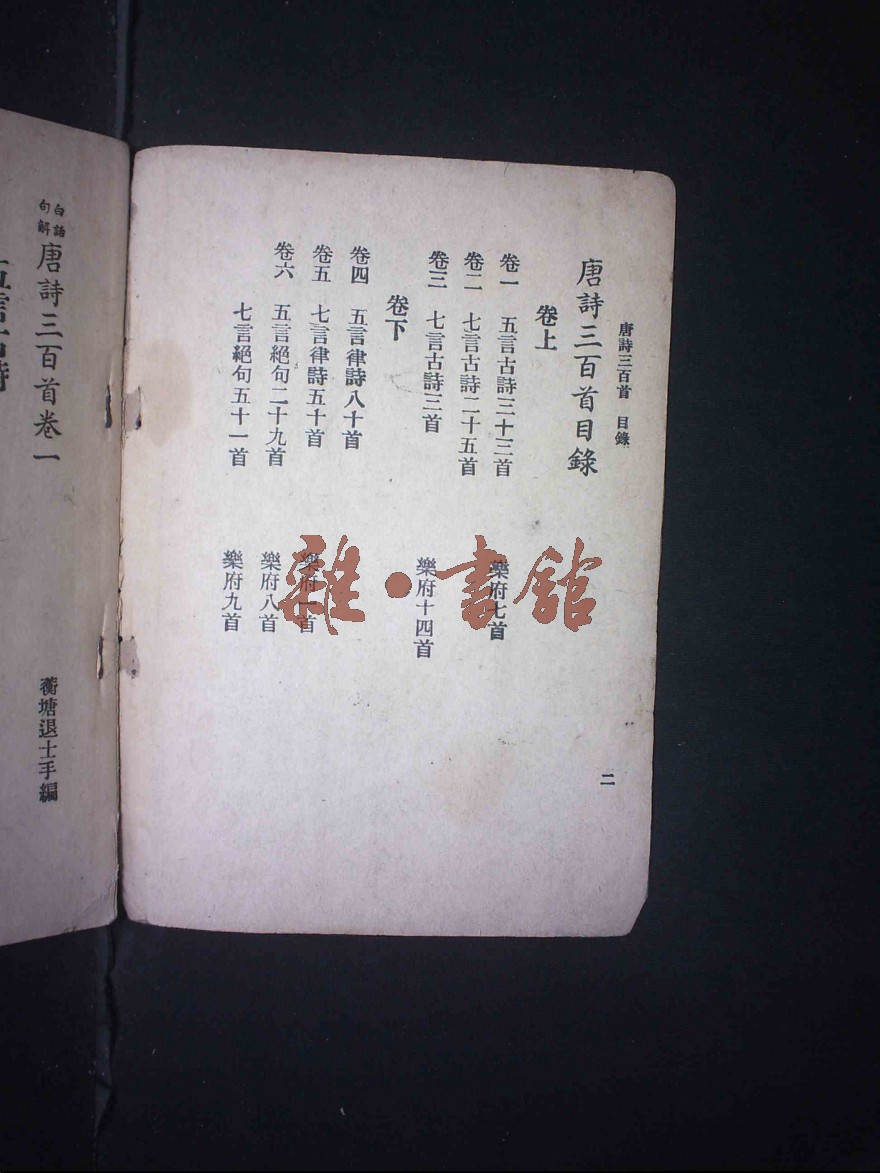 唐詩三百首　目錄
二
唐詩三百首目錄
卷上
卷一　五言古詩三十三首　樂府七首
卷二　七言古詩二十五首
卷三　七言古詩三首　樂府十四首
卷下
卷四　五言律詩八十首
卷五　七言律詩五十首　樂府一首
卷六　五言絕句二十九首　樂府八首
七言絕句五十一首　樂府九首
雜·書館
白話句解唐詩三百首卷一
蘅塘退士手編
五言古詩